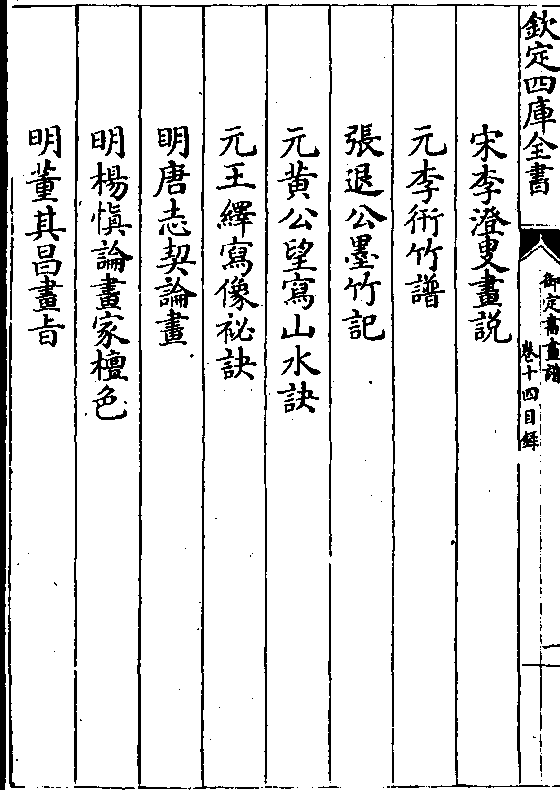 欽定四庫全書
御定書畫譜
卷十四目錄
宋李澄叟畫説
元李衎竹譜
張退公墨竹記
元黄公望寫山水訣
元王繹寫像祕訣
明唐志契論畫
明楊愼論畫家檀色
明董其昌畫旨